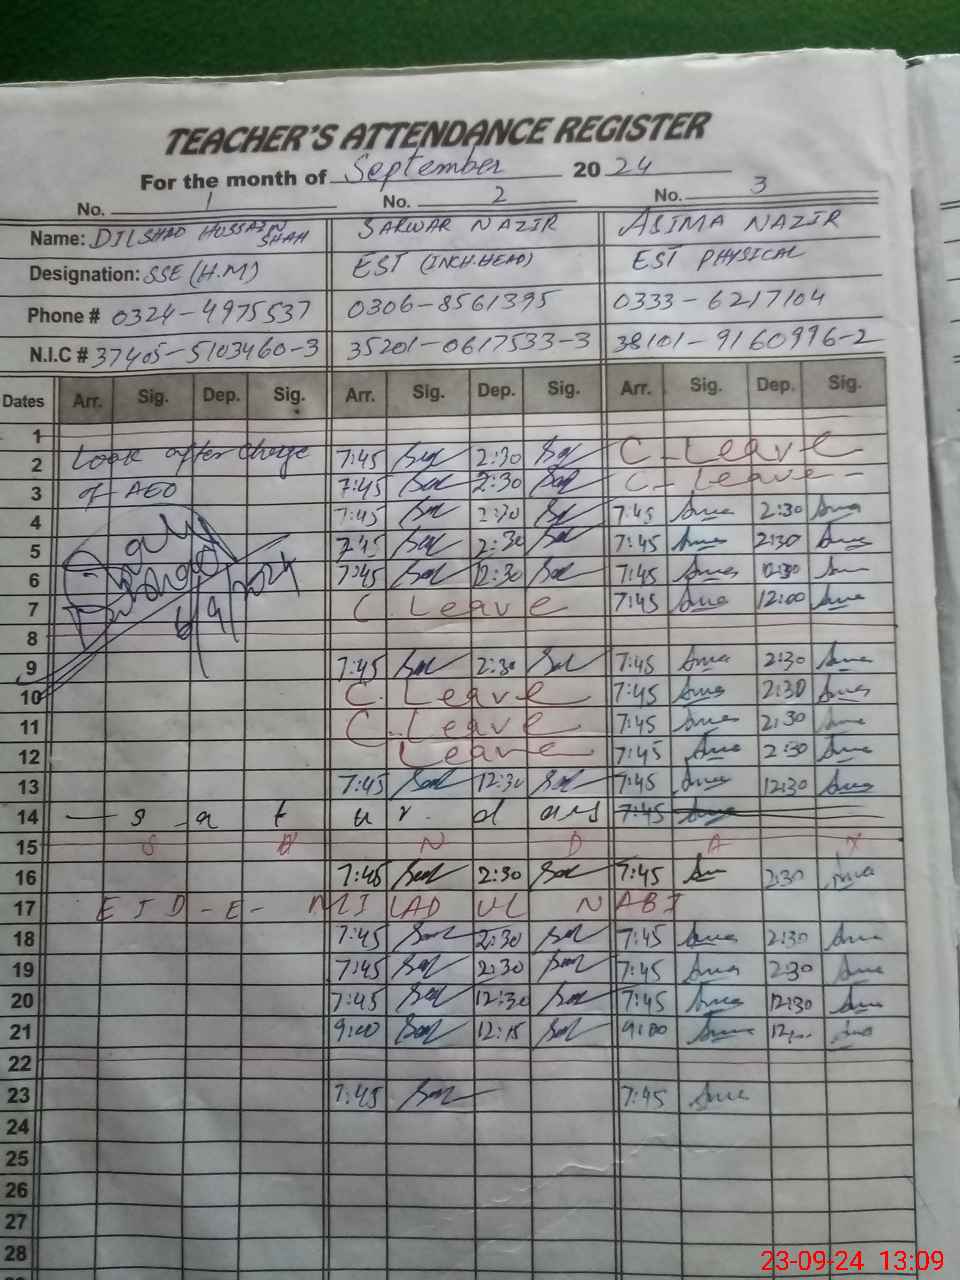 TEACHER'S ATTENDANCE REGISTER
For the month of September 2024
No. 1 No. 2 No. 3
Name: DILSHAD HUSSAIN SHAH SARWAR NAZIR ASIMA NAZIR
Designation: SSE (H.M) EST (INCH.HEAD) EST PHYSICAL
Phone # 0324-4975537 0306-8561395 0333-6217104
N.I.C # 37405-5103460-3 35201-0617533-3 38101-9160996-2
Dates Arr. Sig. Dep. Sig. Arr. Sig. Dep. Sig. Arr. Sig. Dep. Sig.
1
2 Look after charge 7:45 2:30 C. Leave
3 of AEO 7:45 2:30 C. Leave
4 7:45 2:30 7:45 2:30
5 7:45 2:30 7:45 2:30
6 6/9/2024 7:45 12:30 7:45 12:30
7 C. Leave 7:45 12:00
8
9 7:45 2:30 7:45 2:30
10 C. Leave 7:45 2:30
11 C. Leave 7:45 2:30
12 Leave 7:45 2:30
13 7:45 12:30 7:45 12:30
14 7:45
15 S U N D A Y
16 7:45 2:30 7:45 2:30
17 EID-E-MILAD UL NABI
18 7:45 2:30 7:45 2:30
19 7:45 2:30 7:45 2:30
20 7:45 12:30 7:45 12:30
21 9:00 12:15 9:00
22
23 7:45 7:45
24
25
26
27
28
23-09-24 13:09